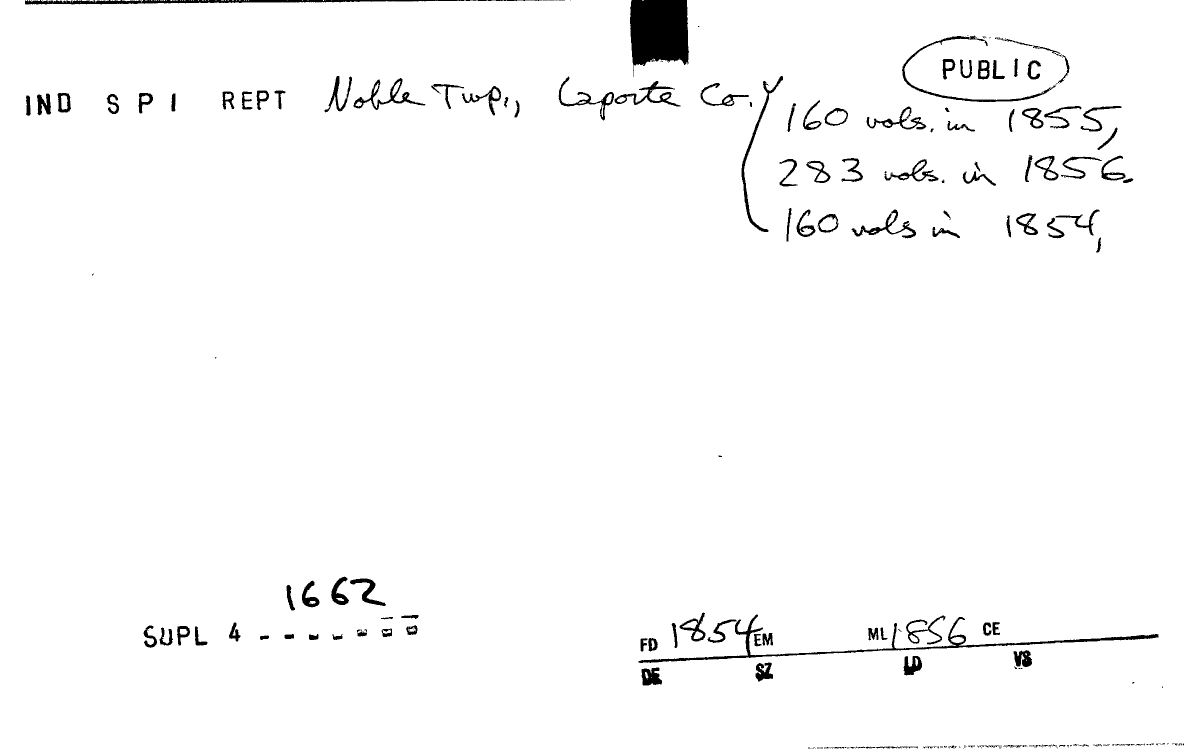 PUBLIC
IND S P I REPT Noble Twp., Laporte Co.
160 vols. in 1855,
283 vols. in 1856.
160 vols in 1854,
1662
SUPL 4 - - - - - - -
FD 1854 EM ML 1856 CE
DE SZ LD VS